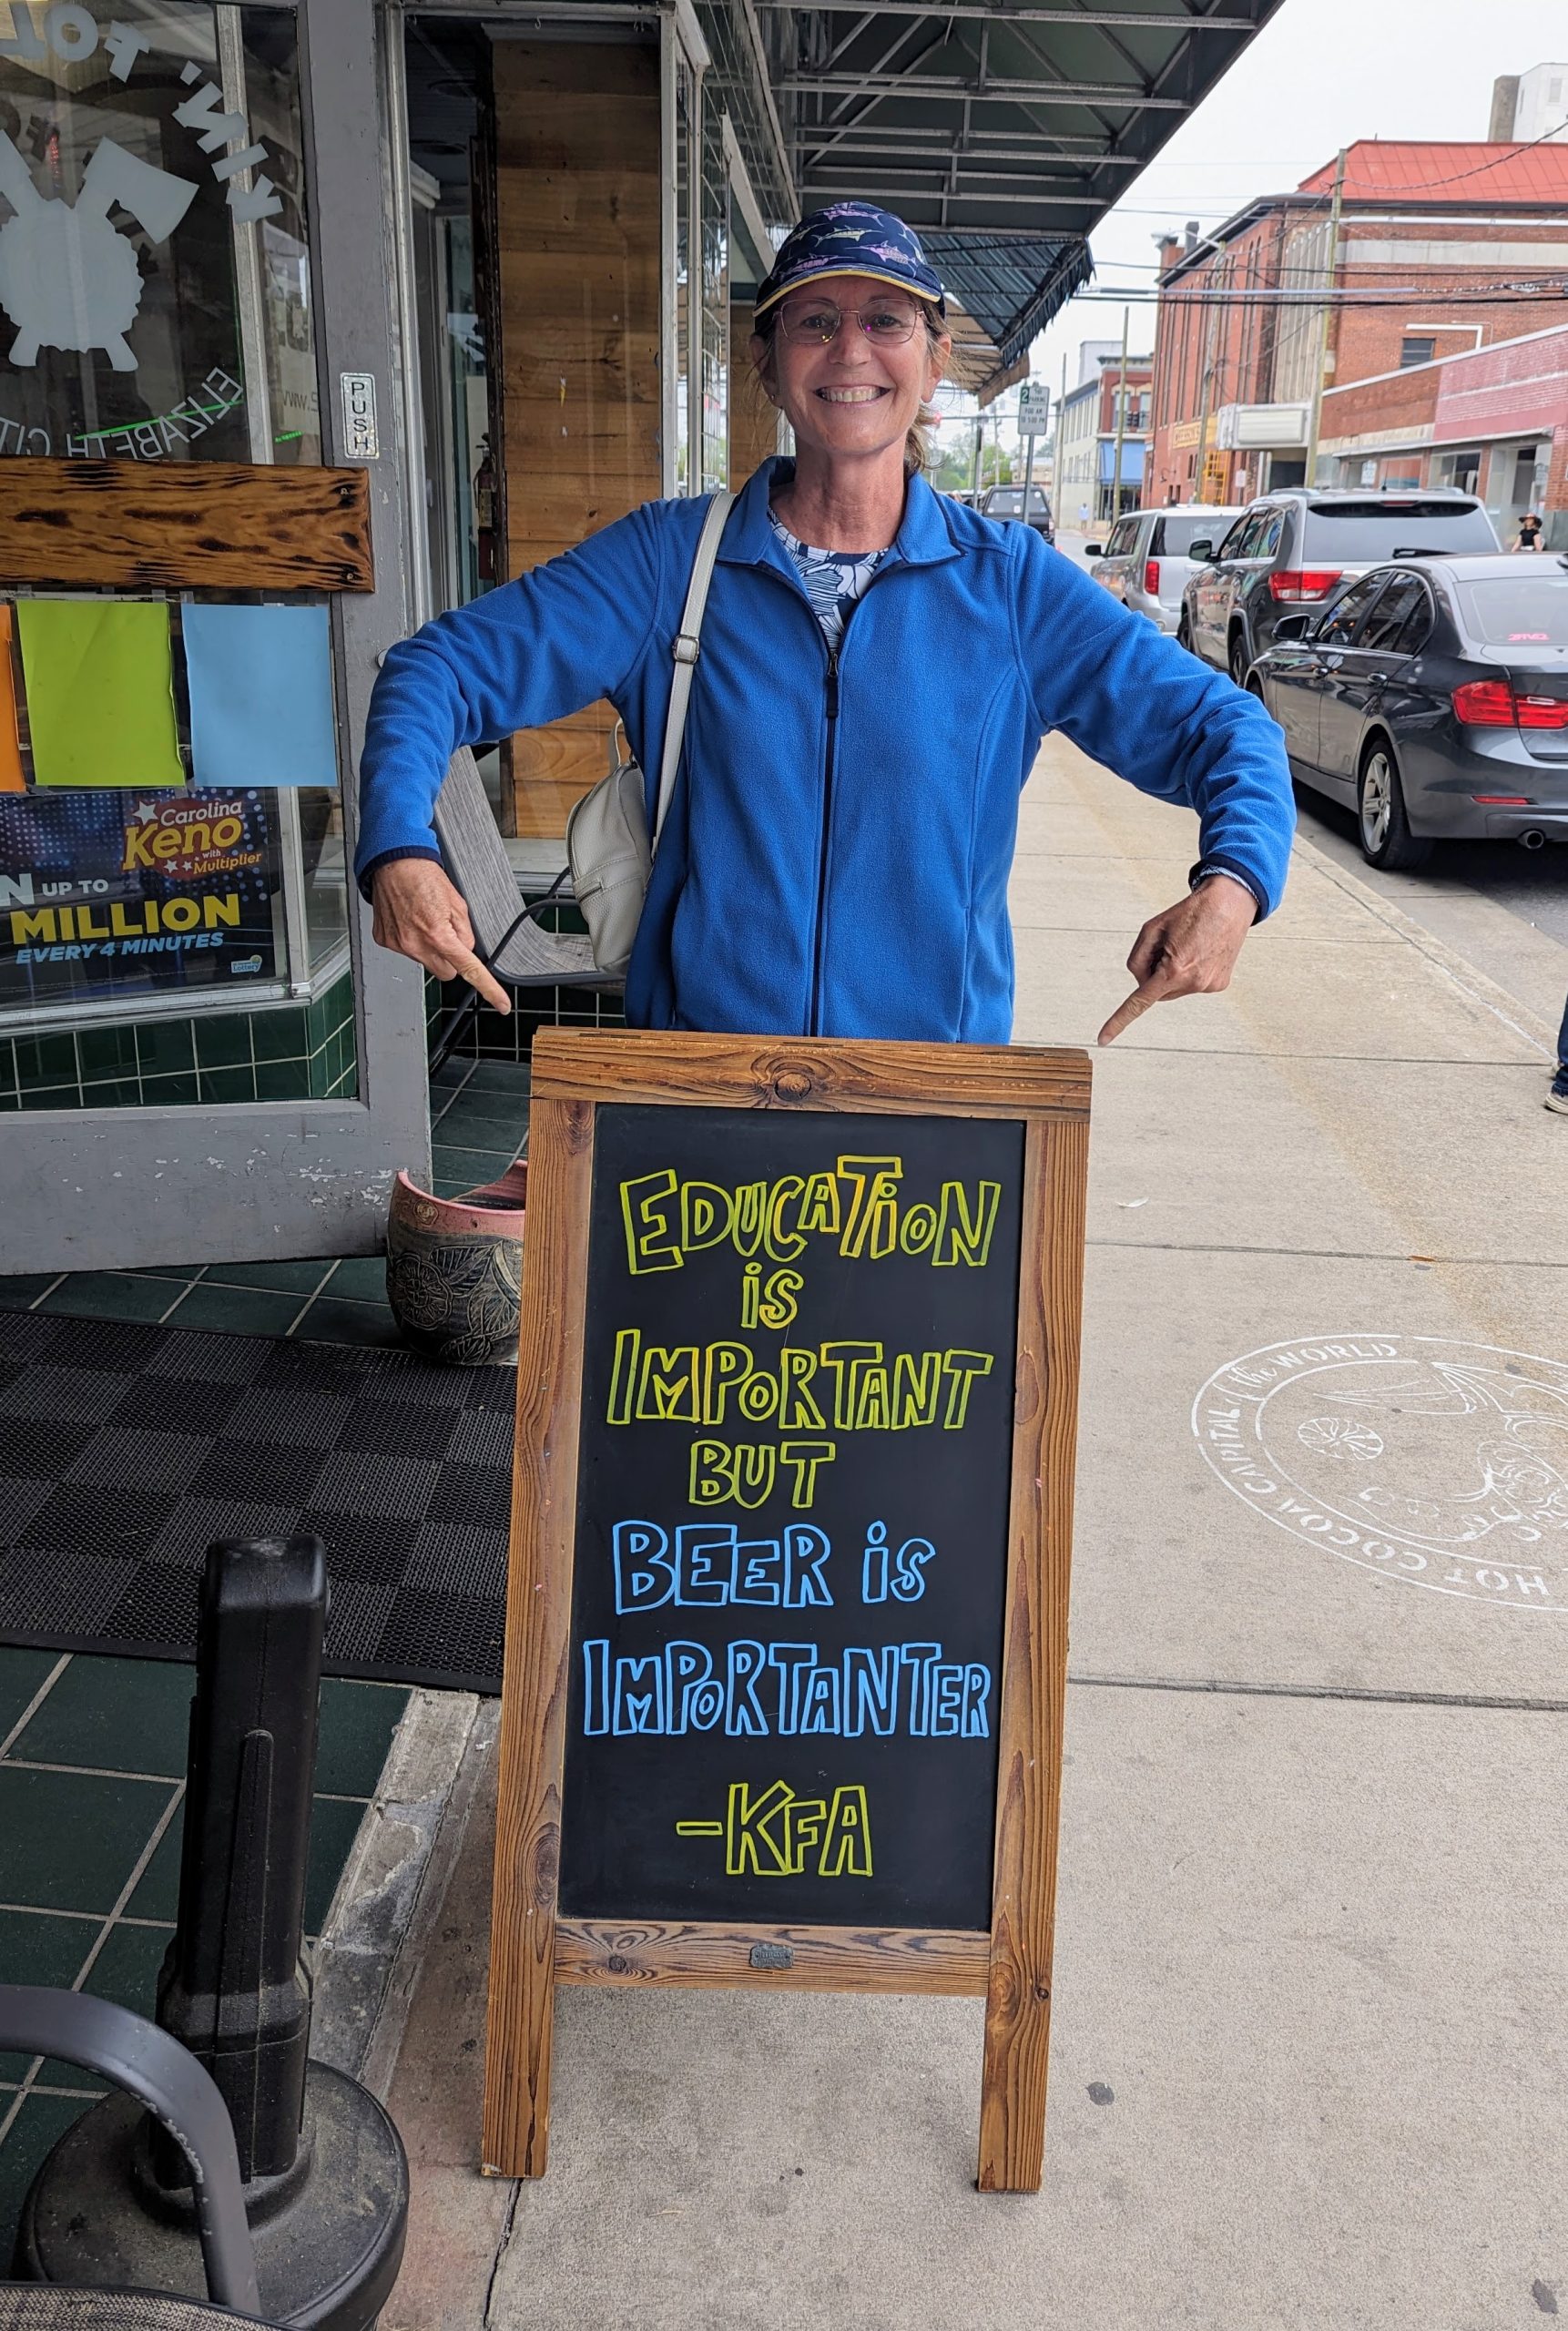 ELIZABETH CIT
PUSH
2
PARKING
Carolina
Keno
with
Multiplier
N UP TO
MILLION
EVERY 4 MINUTES
Lottery
EDUCATiON
iS
IMPORTANT
BUT
BEER iS
IMPORTANTER
-KFA
HOT COCOA CAPITAL of the WORLD